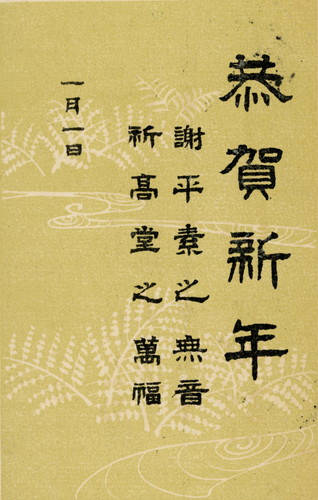 恭賀新年
謝平素之無音
祈高堂之萬福
一月一日